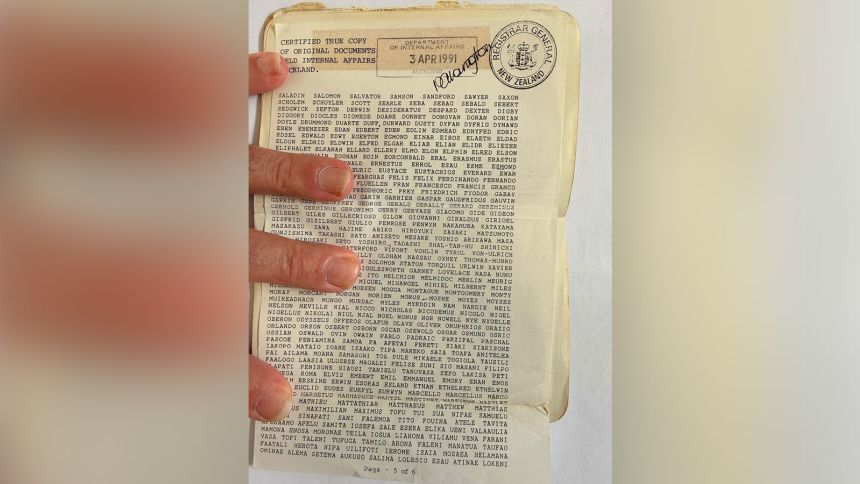 CERTIFIED TRUE COPY
OF ORIGINAL DOCUMENTS
HELD INTERNAL AFFAIRS
AUCKLAND.
DEPARTMENT
OF INTERNAL AFFAIRS
3 APR 1991
AUCKLAND
REGISTRAR GENERAL
NEW ZEALAND
SALADIN SALOMON SALVATOR SAMSON SANDFORD SAWYER SAXON
SCHOLEM SCHUYLER SCOTT SEARLE SEBA SEBAG SEBALD SEBERT
SEDGWICK SEFTON DERWIN DESIDERATUS DESPARD DEXTER DIGBY
DIGGORY DIOCLES DIOMEDE DOANE DONNET DONOVAN DORAN DORIAN
DOYLE DRUMMOND DUARTE DUFF DURWARD DUSTY DYFAN DYFRIG DYNAWD
EBEN EBENEZER EDAN EDBERT EDEN EDLIN EDMEAD EDNYFED EDRIC
EDSEL EDWALD EDWY EGERTON EGMOND EINAR EIROS ELAETH ELDAD
ELDON ELDRID ELDWIN ELFED ELGAR ELIAB ELIAN ELIDR ELIEZER
ELIPHALET ELKANAH ELLARD ELLERY ELMO ELON ELPHIN ELRED ELSON
EOGHAN EOIN EORCONBALD ERAL ERASMUS ERASTUS
ERNESTUS ERROL ESAU ESME ESMOND
EURIC EUSTACE EUSTACNIOS EVERARD EWAN
FEARGHAS FELIS FELIX FERDINANDO FERNANDO
FLUELLEN FRAN FRANCESCO FRANCIS GRANCO
FREODHORIC FREY FRIEDRICH FYODOR GABAY
GARIN GARNIER GASPAR GAUDFRIDUS GAUVIN
GAWAIN GENE GEOFFREY GEORGE GERALD GERALLT GERARD GEREMINUS
GERMINUS GERONIMO GERRY GERVASE GIACOMO GIDE GIDEON
GILBERT GILES GILLECRIOSD GILOW GIOVANNI GIBALDUS GIRIOEL
GISFRID GISILBERT GIULIO PENROSE PENWYN NAKAMURA KATAYAMA
MASAKAZU SAWA HAJIME ABIKO HIROYUKI SASAKI MATSUMOTO
GUNJISHIMA TAKASHI SATO ANISETO MESAKE YOSHIO ARIKAWA MASA
HIROSAKI SETO YOSHIRO TADASHI SHAL-TAN-HU SHINICHI
VIPONT VOHLIN TYROL VON-ULRICH
OLDHAM NASSAU OXNEY THOMAS-MUNRO
SOLOMON STATON TORQUIL URLWIN XAVIER
GARNET LOVELACE NADA NUNU
ITO MELCHIOR MELMIDOC MERLIN MEURIG
MIGUEL MIHANGEL MIHIEL MILBERHT MILES
MOESEN MOGGA MONTAGUE MONTGOMERY MONTY
MORAY MORCANT MORGAN MORIEN MORUS MOSHE MOYES MOYSES
MUIREADHACH MUNGO MURDAC MYLES MYRDDIN NAM NARDIE NEIL
NELSON NEVILLE NIAL NICCO NICHOLAS NICODEMUS NICOLO NIGEL
NIGELLUS NIKOLAI NIUL NJAL NOEL NONUS NOR NOWELL NYE NYGELLE
OBERON ODYSSEUS OFFEROS OLAFUR OLAVE OLIVER ONUPHRIOS ORAZIO
ORLANDO ORSON OSBERT OSBORN OSCAR OSEWOLD OSGAR OSMUND OSRIC
OSSIAN OSWALD OVIN OWAIN PABLO PADRAIC PARZIFAL PASCHAL
PASCOE PENIAMINA SAMOA PA AFETAI FERETI SIAKI SIAKISONE
IAKOPO MATAIO IOANE ISAAKO TIPA MAREKO SAIA TOAFA ANITELEA
PAI AILAMA MOANA SAMASONI TOA PULE MIKAELE TOGIOLA TAUSILI
FAALOGO LAASIA ULUSESE MAGALEI FELISE SUNI SIO MASANI FILIPO
PENISONE SIAOSI TANIELU TANUVASA SEFO LAKISA PETI
ROMA ELVIS EMBERT EMIL EMMANUEL EMORY ENAN ENOS
ERSKINE ERWIN ESDRAS ESLAND ETHAN ETHELRED ETHELWIN
EUCLID EUDES EURFYL EURWYN MARCELLO MARCELLUS MARCO
MATHIEU MATTATHIAN MATTHAEUS MATTHEW MATTHIAS
MAXIMILIAN MAXIMUS TOFU TUI SUA NIFAE SAMUELU
SINAPATI SANI FALEMOA TITO FOUINA ATELE TAVITA
APELU SAMITA IOSEFA SALE ESERA ELIKA UENI VALAAULIA
MAMONA ENOSA MORONAE TEILA IOSUA LIAHONA VILIAMU VENA FARANI
VASA TOPI TALENI TUFUGA TAMILO ARONA PALENI MANATUA TAUFAO
FAATALI HEROTA NIPA UILIFOTI IEROME ISAIA MOSAEA HELAMANA
OMINAE ALEMA SETEMA AUKUSO SALIMA LOLESIO ESAU ATINAE LOKENI
Page - 5 of 6